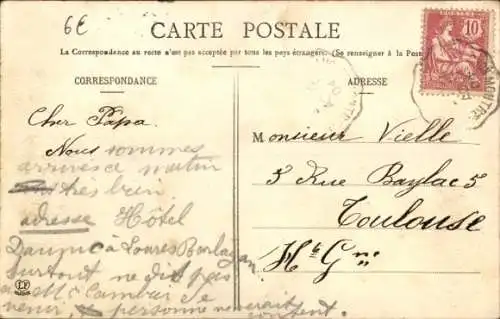 6E
CARTE POSTALE
La Correspondance au recto n'est pas acceptée par tous les pays étrangers. (Se renseigner à la Poste
CORRESPONDANCE
ADRESSE
10
Cher Papa.
Nous sommes
arrivés ce matin
très bien
adresse Hôtel
à Loures Barbazan
surtout ne dit pas
à Mr de
venir, personne
Monsieur Vielle
5 Rue Baylac 5
Toulouse
Hte Gne